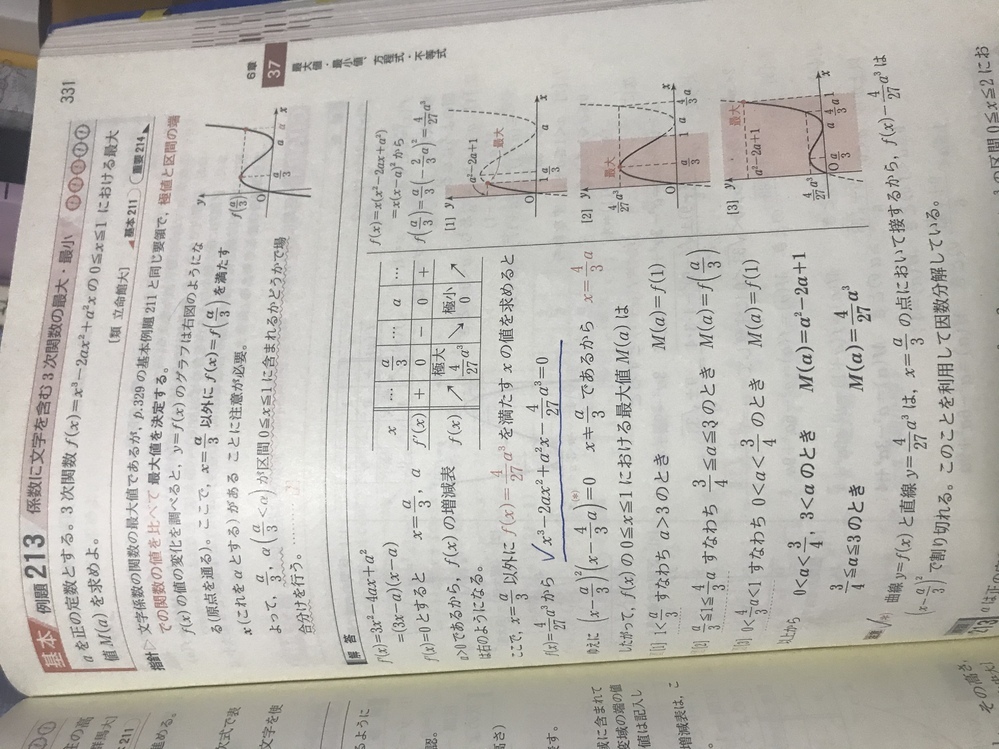 331
基本 例題 213 係数に文字を含む3次関数の最大・最小
aを正の定数とする。3次関数 f(x)=x³−2ax²+a²x の 0≦x≦1 における最大
値 M(a) を求めよ。
[類 立命館大]
基本 211 重要 214
指針 文字係数の関数の最大値であるが，p.329 の基本例題 211 と同じ要領で，極値と区間の端
での関数の値を比べて 最大値を決定する。
f(x) の値の変化を調べると，y=f(x) のグラフは右図のようにな
る(原点を通る)。ここで，x=a/3 以外に f(x)=f(a/3) を満たす
x (これをαとする)があることに注意が必要。
よって，a/3，α(a/3<α) が区間 0≦x≦1 に含まれるかどうかで場
合分けを行う。
y
f(a/3)
O a/3 a α x
6章
37
最大値・最小値，方程式・不等式
解答
f'(x)=3x²−4ax+a²
=(3x−a)(x−a)
f'(x)=0 とすると x=a/3，a
a>0 であるから，f(x) の増減表
は右のようになる。
x … a/3 … a …
f'(x) + 0 − 0 +
f(x) ↗ 極大 4/27 a³ ↘ 極小 0 ↗
ここで，x=a/3 以外に f(x)=4/27 a³ を満たす x の値を求めると
f(x)=4/27 a³ から √x³−2ax²+a²x−4/27 a³=0
ゆえに (x−a/3)²(x−4/3 a)=0 (*) x≠a/3 であるから x=4/3 a
したがって，f(x) の 0≦x≦1 における最大値 M(a) は
[1] 1<a/3 すなわち a>3 のとき M(a)=f(1)
[2] a/3≦1≦4/3 a すなわち 3/4≦a≦3 のとき M(a)=f(a/3)
[3] 4/3 a<1 すなわち 0<a<3/4 のとき M(a)=f(1)
以上から
0<a<3/4，3<a のとき M(a)=a²−2a+1
3/4≦a≦3 のとき M(a)=4/27 a³
f(x)=x(x²−2ax+a²)
=x(x−a)² から
f(a/3)=a/3(−2/3 a)²=4/27 a³
[1] y
a²−2a+1
最大
O 1 a/3 a x
[2] y
最大
4/27 a³
O a/3 1 a 4/3 a x
[3] y
最大
a²−2a+1
4/27 a³
O a/3 a 4/3 a 1 x
(*) 曲線 y=f(x) と直線 y=4/27 a³ は，x=a/3 の点において接するから，f(x)−4/27 a³ は
(x−a/3)² で割り切れる。このことを利用して因数分解している。
の区間 0≦x≦2 にお
213
その高さ，